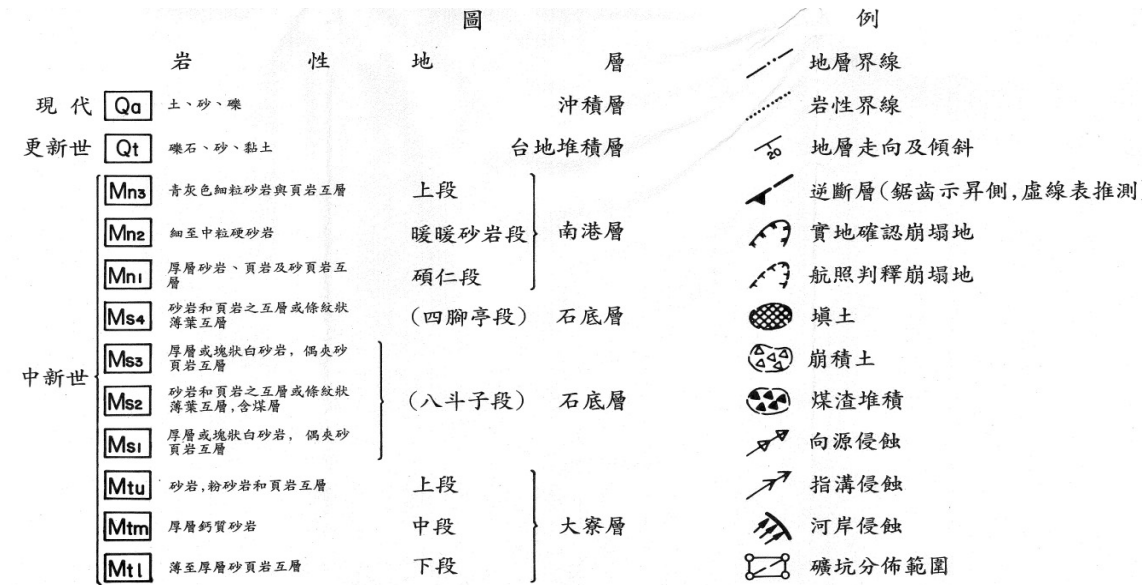 圖例
岩性 地層
現代 Qa 土、砂、礫 沖積層
更新世 Qt 礫石、砂、黏土 台地堆積層
中新世
Mn3 青灰色細粒砂岩與頁岩互層 上段
Mn2 細至中粒硬砂岩 暖暖砂岩段 南港層
Mn1 厚層砂岩、頁岩及砂頁岩互
層 碩仁段
Ms4 砂岩和頁岩之互層或條紋狀
薄葉互層 (四腳亭段) 石底層
Ms3 厚層或塊狀白砂岩, 偶夾砂
頁岩互層
Ms2 砂岩和頁岩之互層或條紋狀
薄葉互層,含煤層 (八斗子段) 石底層
Ms1 厚層或塊狀白砂岩, 偶夾砂
頁岩互層
Mtu 砂岩,粉砂岩和頁岩互層 上段
Mtm 厚層鈣質砂岩 中段 大寮層
Mtl 薄至厚層砂頁岩互層 下段
地層界線
岩性界線
20 地層走向及傾斜
逆斷層(鋸齒示昇側,虛線表推測
實地確認崩塌地
航照判釋崩塌地
填土
崩積土
煤渣堆積
向源侵蝕
指溝侵蝕
河岸侵蝕
礦坑分佈範圍